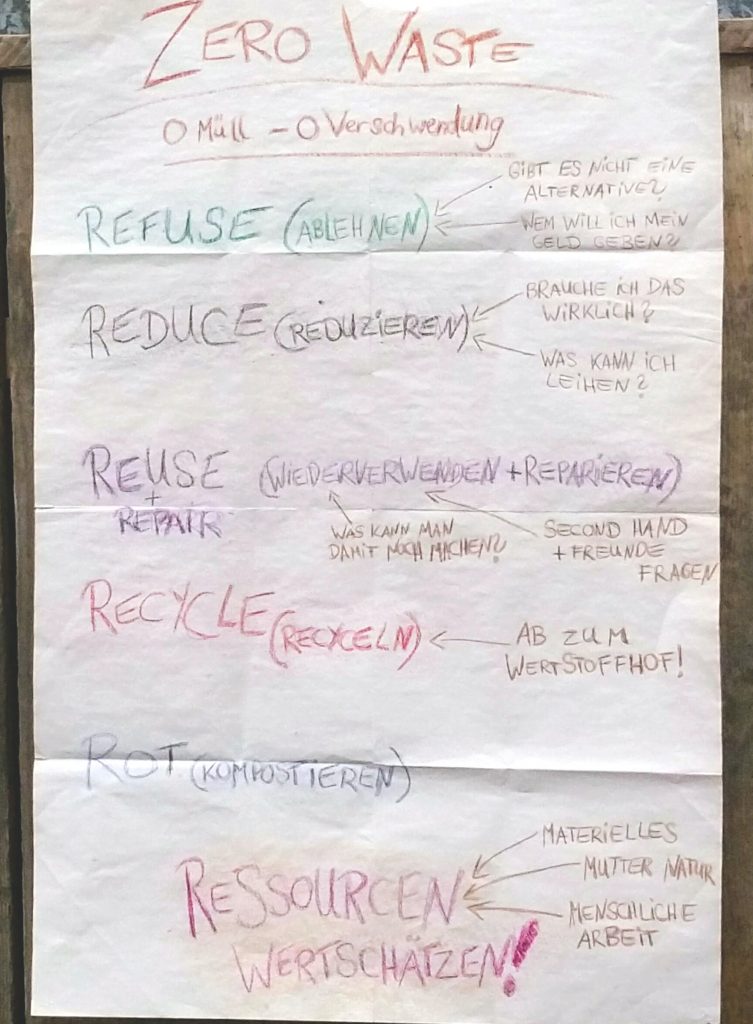 ZERO WASTE
0 Müll - 0 Verschwendung
GIBT ES NICHT EINE
ALTERNATIVE?
REFUSE (ABLEHNEN)
WEM WILL ICH MEIN
GELD GEBEN?
BRAUCHE ICH DAS
WIRKLICH?
REDUCE (REDUZIEREN)
WAS KANN ICH
LEIHEN?
REUSE (WIEDERVERWENDEN + REPARIEREN)
+
REPAIR
WAS KANN MAN
DAMIT NOCH MACHEN?
SECOND HAND
+ FREUNDE
FRAGEN
RECYCLE (RECYCELN)
AB ZUM
WERTSTOFFHOF!
ROT (KOMPOSTIEREN)
MATERIELLES
MUTTER NATUR
MENSCHLICHE
ARBEIT
RESSOURCEN
WERTSCHÄTZEN!